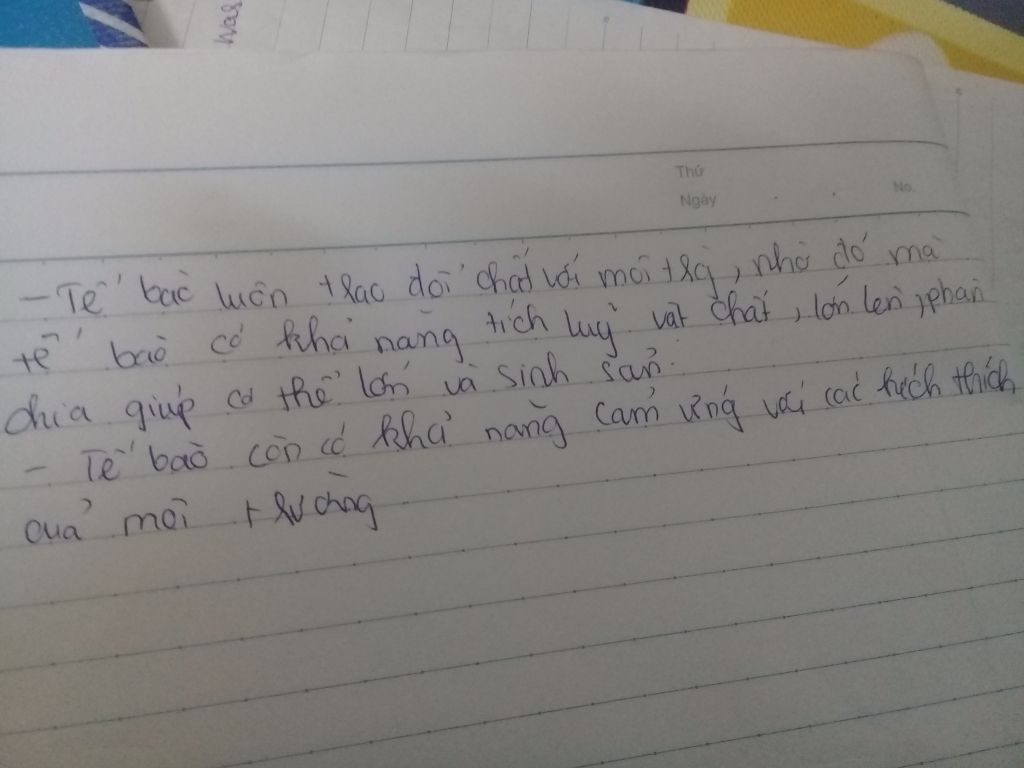 has
Thứ
Ngày
No.
- Tế bào luôn trao đổi chất với môi trg, nhờ đó mà
tế bào có khả năng tích luỹ vật chất, lớn lên, phân
chia giúp cơ thể lớn và sinh sản.
- Tế bào còn có khả năng cảm ứng với các kích thích
của môi trường